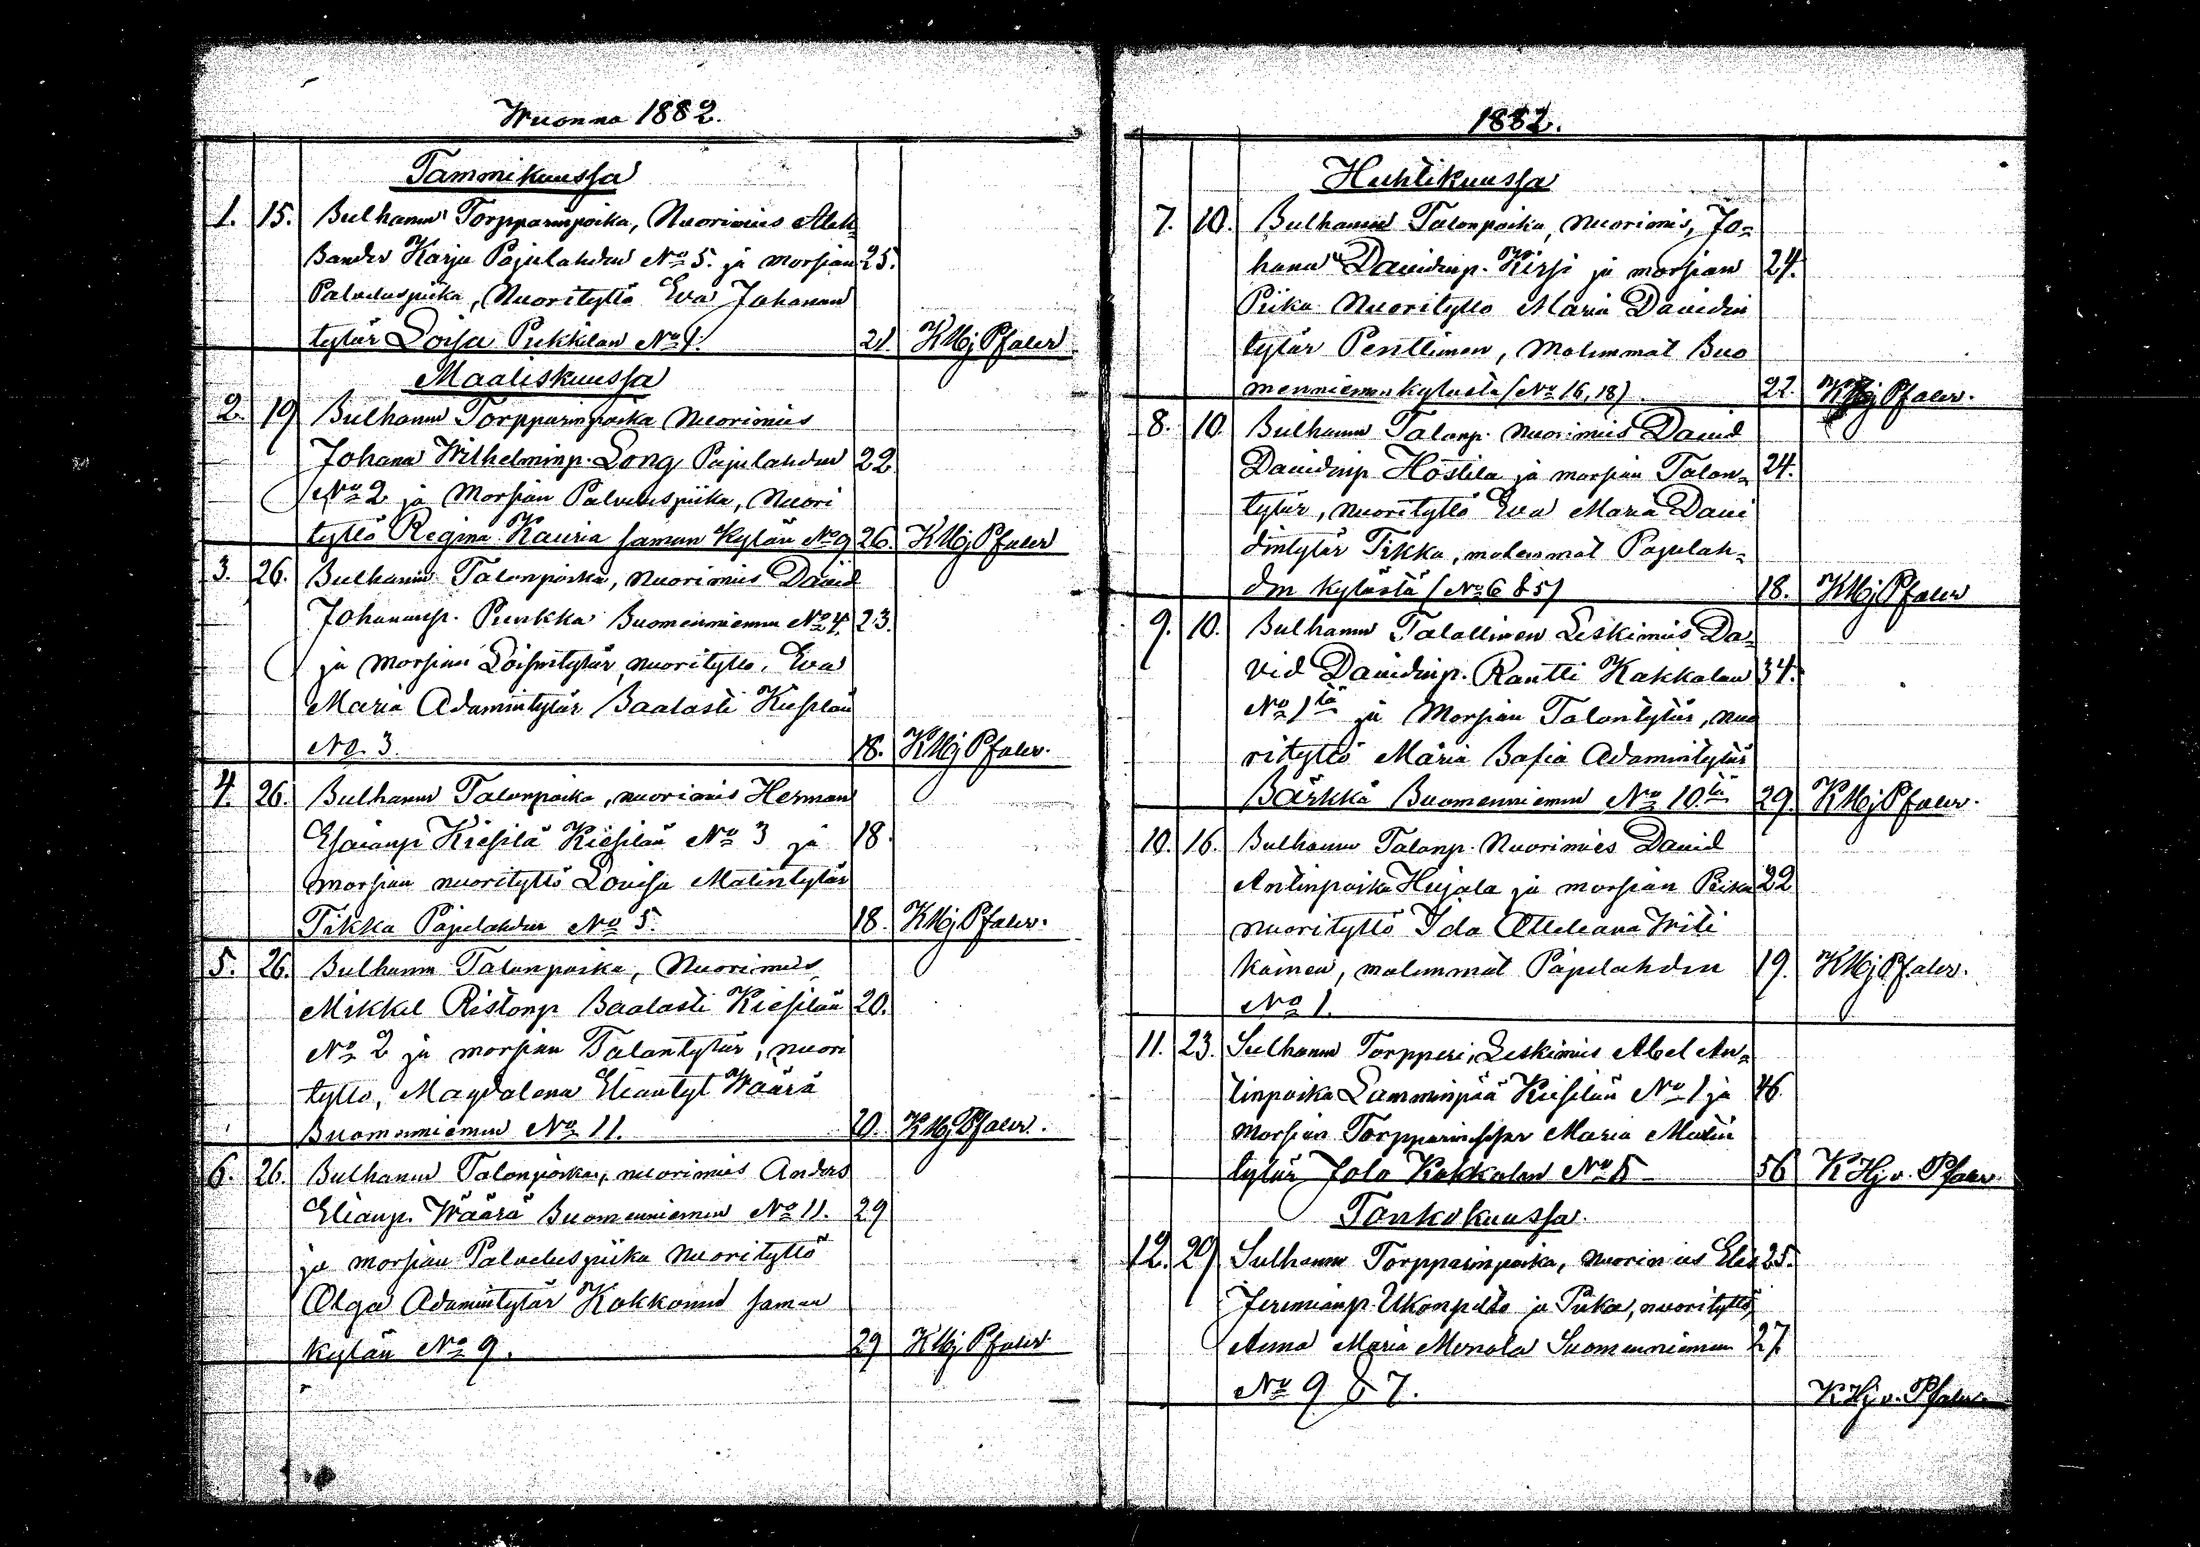 Wuonna 1882.
Tammikuussa
1. 15. Sulhanen Torpparinpoika, Nuorimies Alek-
sander Karju Pajulahden No 5. ja morsian 25.
Palveluspiika, Nuorityttö Eva Johanan
tytär Loisa Pukkilan No 1. 21. KHj Pfaler
Maaliskuussa
2. 19 Sulhanen Torpparinpoika Nuorimies
Johana Wilhelminp. Long Pajulahden 22
No 2 ja Morsian Palveluspiika, Nuori
tyttö Regina Kauria saman Kylän No 9 26. KHj Pfaler
3. 26. Sulhanen Talonpoika, nuorimies David
Johaninp. Punkka Suomenniemen No 4. 23.
ja Morsian Loisentytär, nuorityttö, Eva
Maria Adamintytär Saalasti Kiesilän
No 3. 18. KHj Pfaler.
4. 26. Sulhanen Talonpoika, nuorimies Herman
Esaianp Kiesilä Kiesilän No 3 ja 18.
morsian nuorityttö Lovisa Matintytär
Tikka Pajulahden No 5. 18. KHj Pfaler.
5. 26. Sulhanen Talonpoika, Nuorimies
Mikkel Ristonp Saalasti Kiesilän 20.
No 2 ja morsian Talontytär, nuori
tyttö, Magdalena Eliantyt Wäärä
Suomenniemen No 11. 20. KHj Pfaler.
6. 26. Sulhanen Talonpoika, nuorimies Anders
Elianp. Wäärä Suomenniemen No 11. 29
ja morsian Palveluspiika Nuorityttö
Olga Adamintytär Kokkonen saman
kylän No 9. 29 KHj Pfaler
1882.
Huhtikuussa
7. 10. Sulhanen Talonpoika, Nuorimis, Jo-
hana Davidinp. Kirsi ja morsian 24.
Piika Nuorityttö Maria Davidin
tytär Penttinen, Molemmat Suo
menniemen kylästä (No 16, 18). 22. KHj Pfaler.
8. 10. Sulhanen Talonp. Nuorimies David
Davidinp Höstilä ja morsian Talon- 24.
tytär, nuorityttö Eva Maria Davi
dintytär Tikka, molemmat Pajulah-
den kylästä (No 6 & 5) 18. KHj Pfaler
9. 10. Sulhanen Talallinen Leskimies Da-
vid Davidinp. Rantti Kakkolan 34.
No 1tä ja Morsian Talontytär, nuo
rityttö Maria Sofia Adamintytär
Särkkä Suomenniemen No 10.tä 29. KHj Pfaler.
10. 16. Sulhanen Talonp. Nuorimies David
Antinpoika Hujala ja morsian Piika 22
nuorityttö Ida Otteliana Witi
kainen, molemmat Pajulahden 19. KHj Pfaler.
No 1.
11. 23. Sulhanen Torpperi, Leskimies Abel An-
tinpoika Lamminpää Kiesilän No 1 ja 46.
Morsian Maria Matin
tytär Jola Kakkolan No 5 56 KHj v. Pfaler
Toukokuussa.
12. 29 Sulhanen Torpparinpoika, nuorimies Elia 25.
Jeremianp. Ukonpelto ja Piika, nuorityttö,
Anna Maria Menola Suomenniemen 27.
No 9 & 7. KHj v. Pfaler